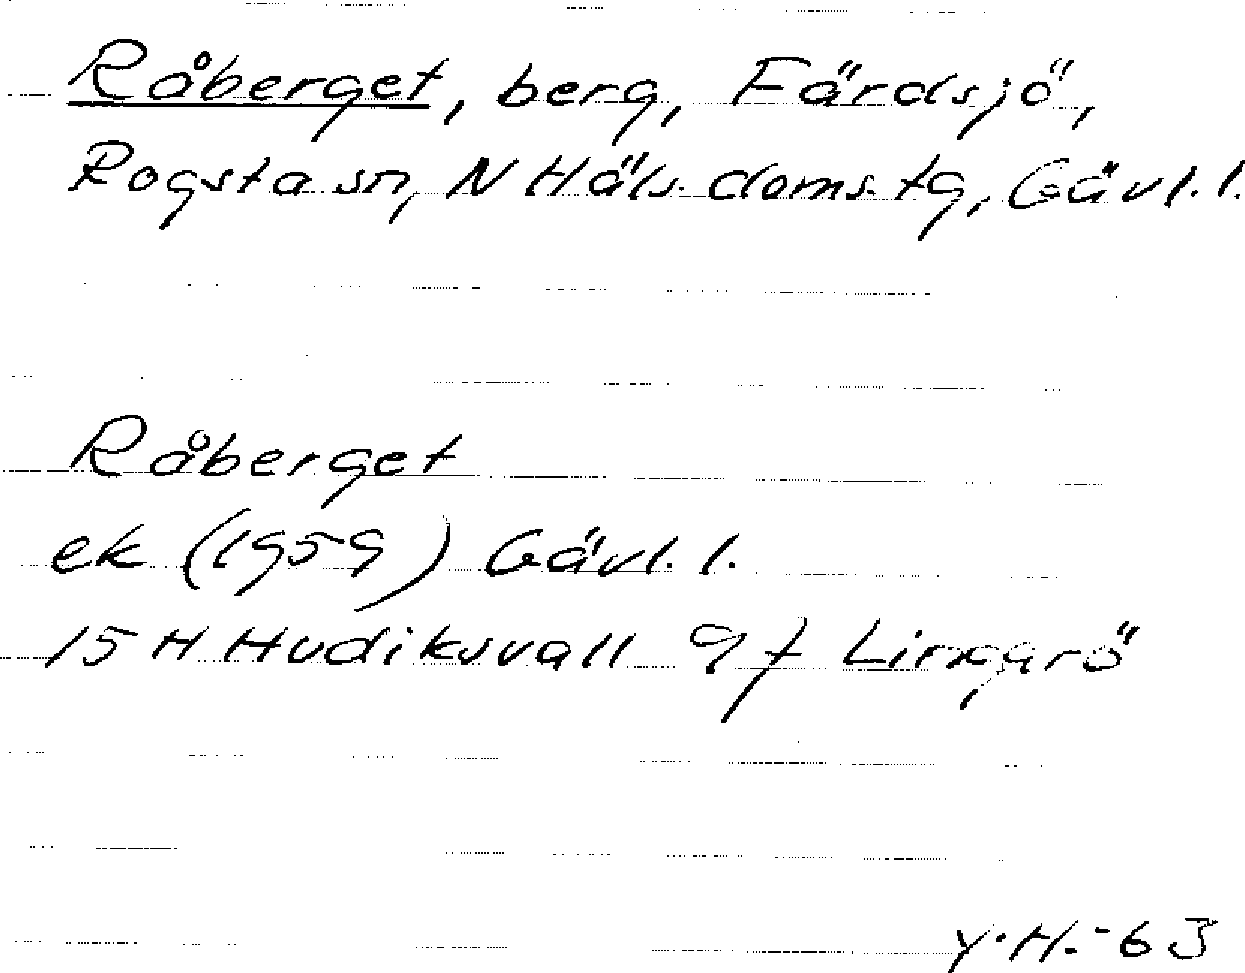 Råberget, berg, Färdsjö,
Rogsta sn, N Häls. doms. tg, Gävl. l.
Råberget
ek (1959) Gävl. l.
15 H Hudiksvall 9 f Lingarö
Y.H.-63